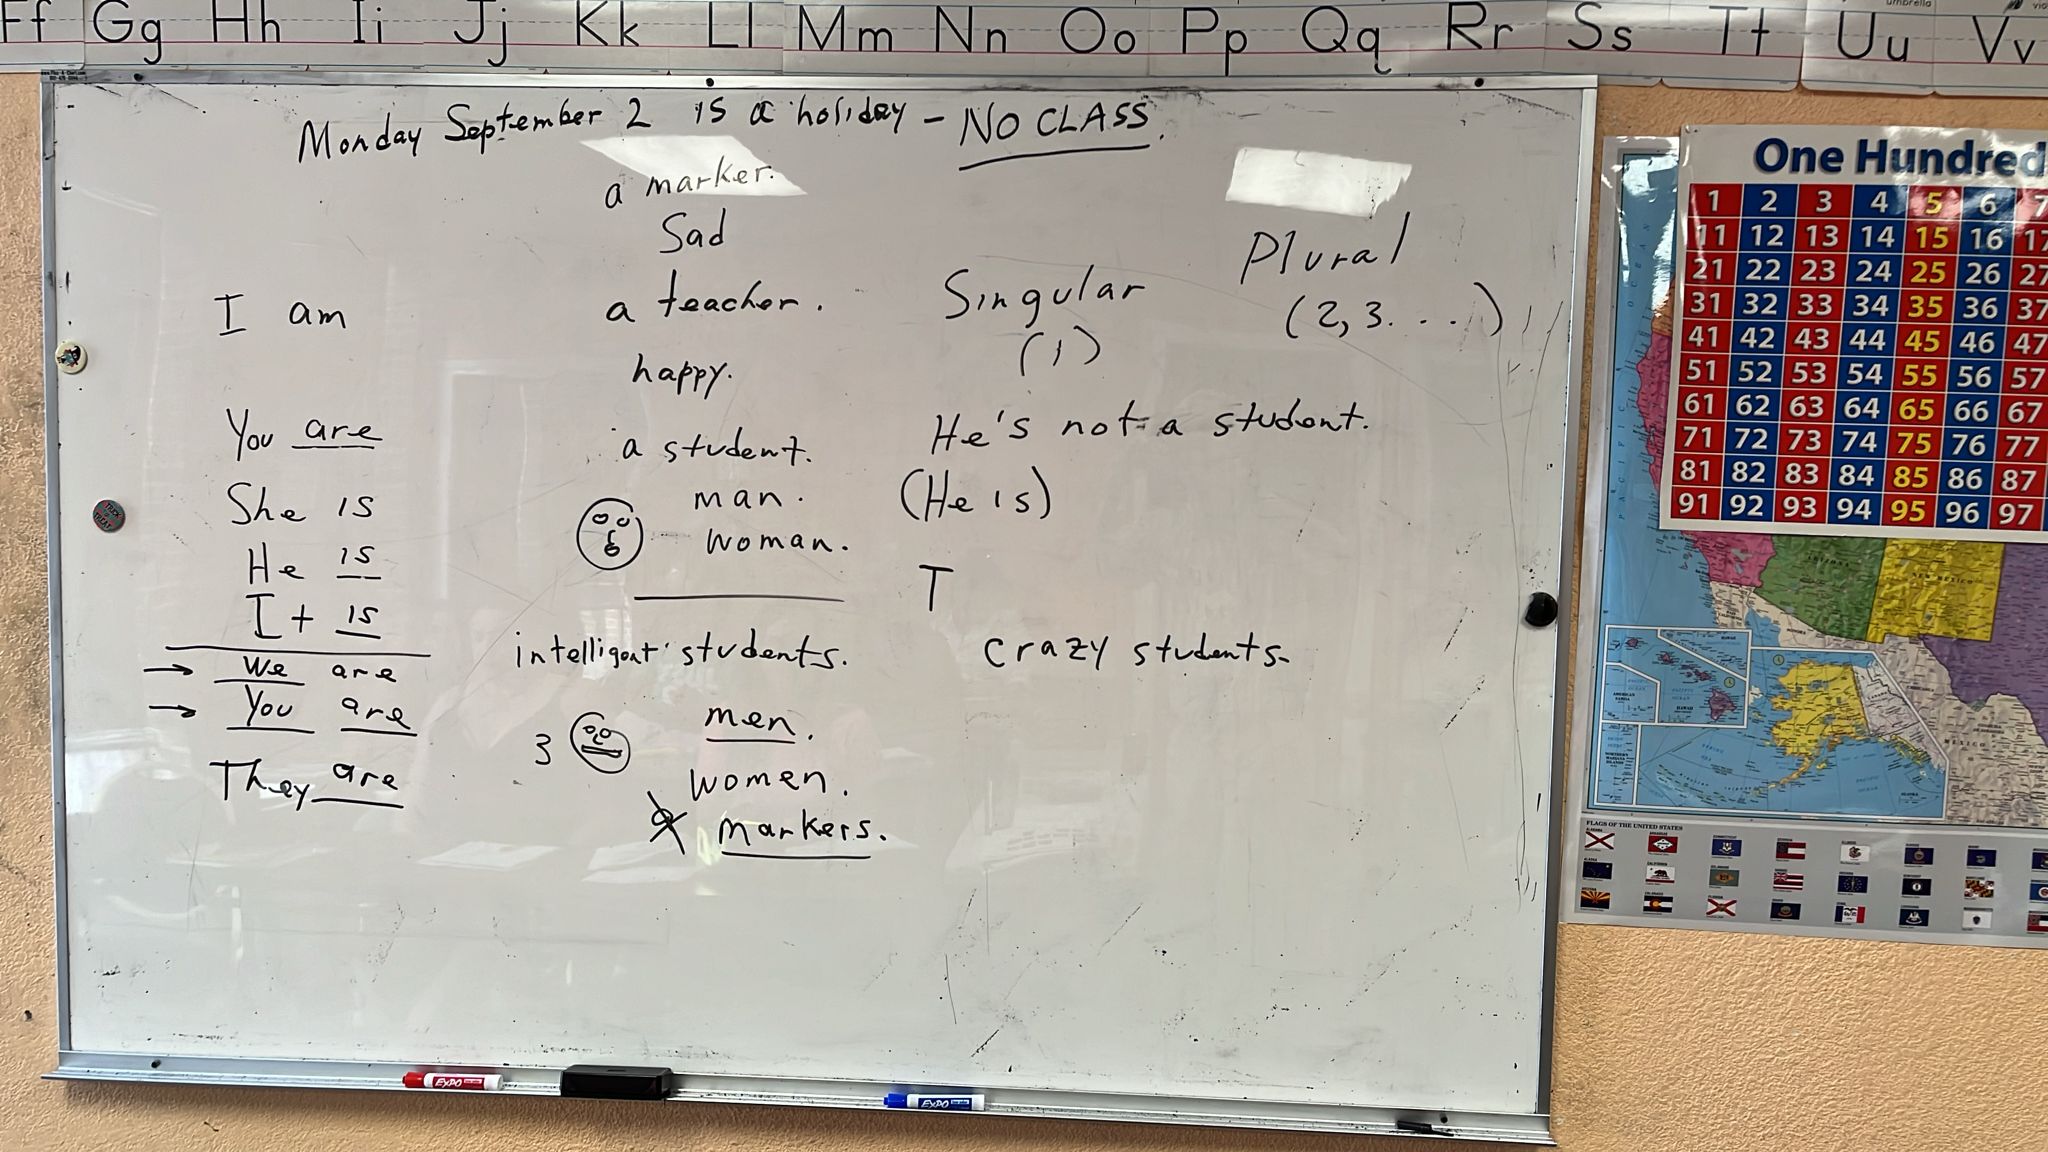 Ff Gg Hh Ii Jj Kk Ll Mm Nn Oo Pp Qq Rr Ss Tt Uu Vv
umbrella
Monday September 2 is a holiday - NO CLASS.
a marker.
Sad
a teacher.
happy.
a student.
man.
woman.
I am
You are
She is
He is
It is
→ We are
→ You are
They are
intelligent students.
3
men.
women.
a markers.
Singular
(1)
Plural
(2, 3. . . .)
He's not a student.
(He is)
T
crazy students.
EXPO
EXPO
One Hundred
1 2 3 4 5 6 7
11 12 13 14 15 16 17
21 22 23 24 25 26 27
31 32 33 34 35 36 37
41 42 43 44 45 46 47
51 52 53 54 55 56 57
61 62 63 64 65 66 67
71 72 73 74 75 76 77
81 82 83 84 85 86 87
91 92 93 94 95 96 97
ARIZONA
NEW MEXICO
MEXICO
FLAGS OF THE UNITED STATES